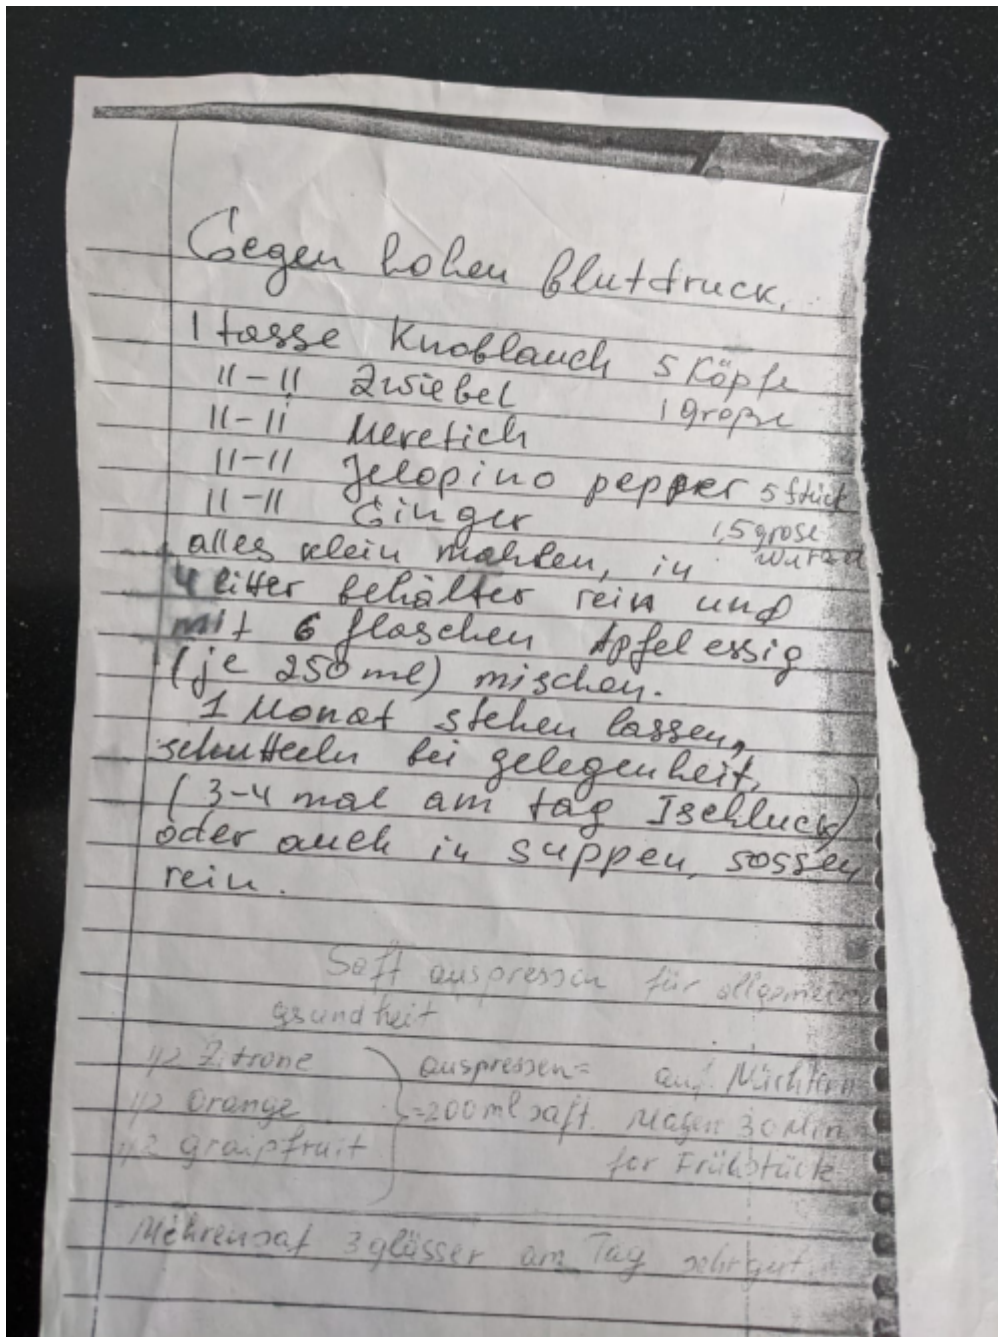 Gegen hohen Blutdruck.
1 tasse Knoblauch 5 Köpfe
11-11 Zwiebel 1 große
11-11 Meretich
11-11 Jelopino pepper 5 stück
11-11 Ginger 1,5 grose
alles klein mahlen, in wurzel
4 litter behälter rein und
mit 6 flaschen Apfelessig
(je 250 ml) mischen.
1 Monat stehen lassen,
schutteln bei gelegenheit,
(3-4 mal am tag 1schluck)
oder auch in suppen, sossen
rein.
Saft auspressen für allgemein
gsundheit
1/2 Zitrone auspressen= auf Nüchtern
1/2 Orange =200ml saft. Magen 30 Min
1/2 graipfruit for Frühstück
Möhrensaf 3 glässer am Tag sehr gut.